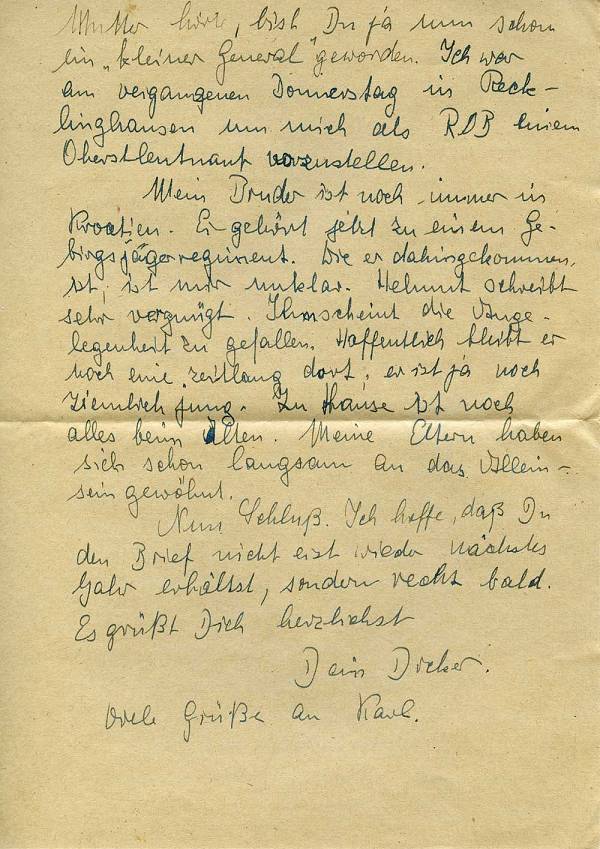 Mutter hörte, bist Du ja nun schon
ein „kleiner General" geworden. Ich war
am vergangenen Donnerstag in Reck-
linghausen um mich als ROB einem
Oberstleutnant vorzustellen.
Mein Bruder ist noch immer in
Kroatien. Er gehört jetzt zu einem Ge-
birgsjägerregiment. Wie er dahingekommen
ist, ist mir unklar. Helmut schreibt
sehr vergnügt. Ihm scheint die Ange-
legenheit zu gefallen. Hoffentlich bleibt er
noch eine zeitlang dort, er ist ja noch
ziemlich jung. Zu Hause ist noch
alles beim Alten. Meine Eltern haben
sich schon langsam an das Allein-
sein gewöhnt.
Nun Schluß. Ich hoffe, daß Du
den Brief nicht erst wieder nächstes
Jahr erhältst, sondern recht bald.
Es grüßt Dich herzlichst
Dein
Viele Grüße an Karl.